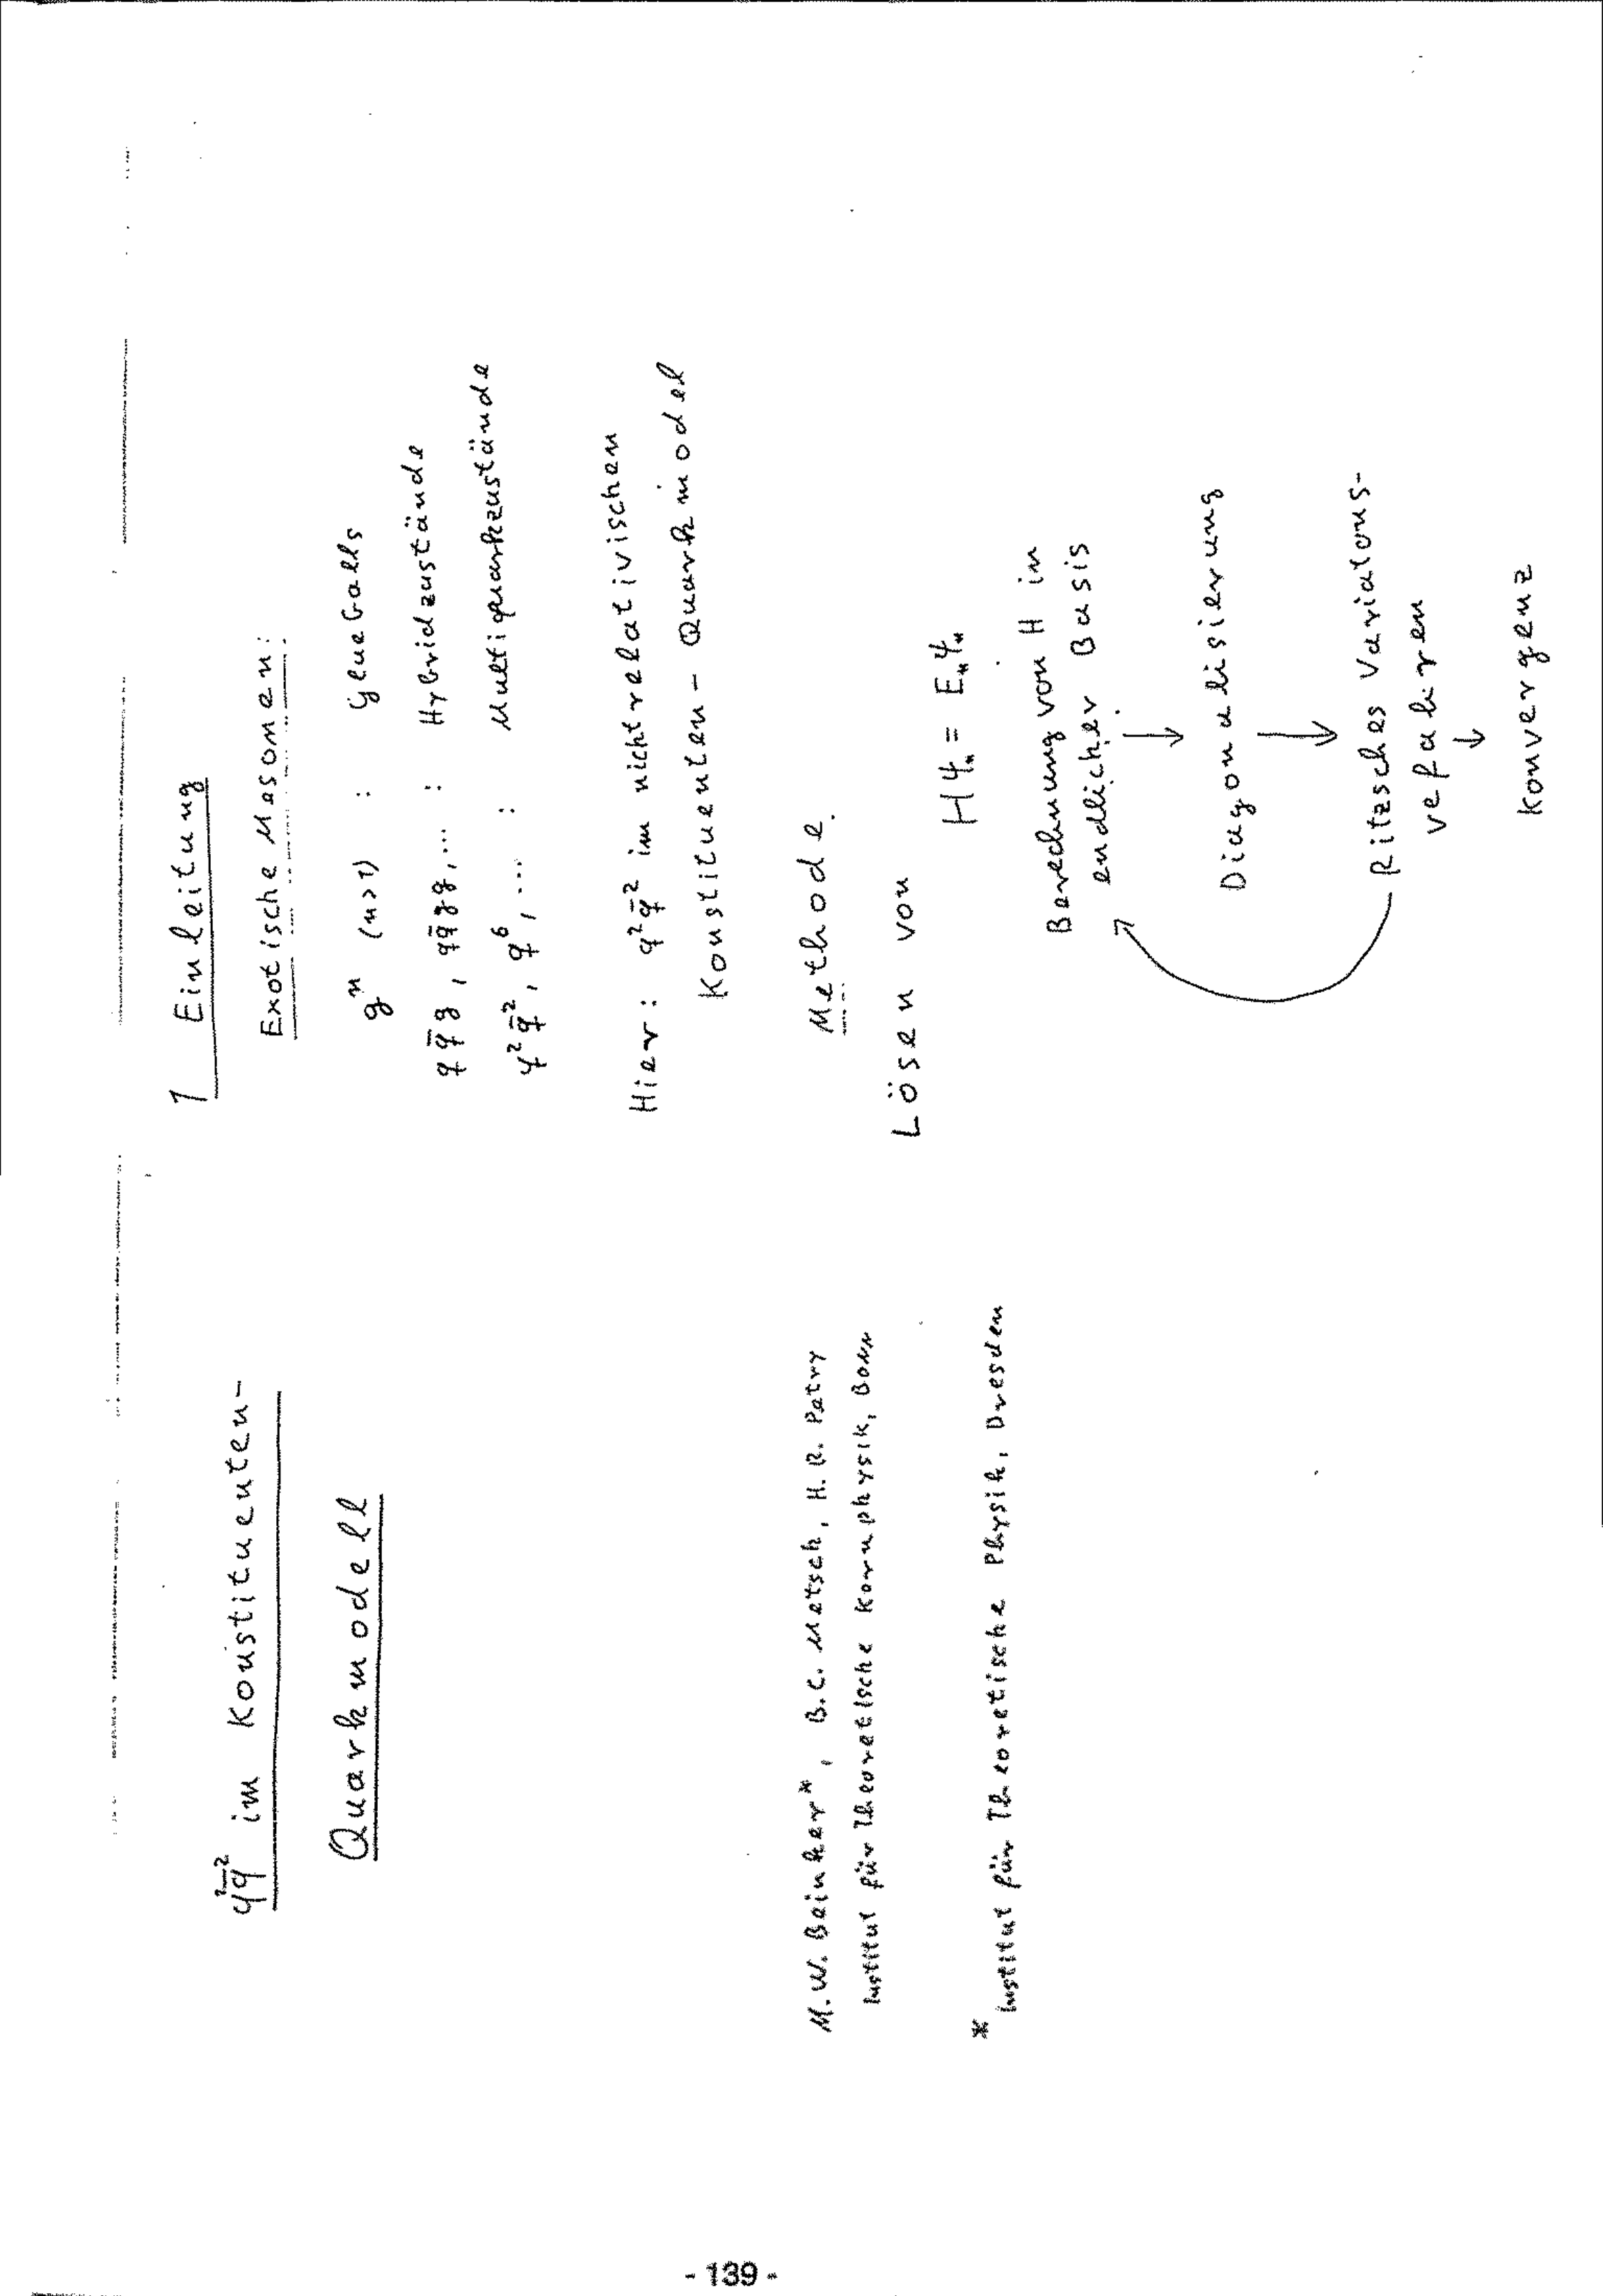 q²q̄² im Konstituenten-
Quarkmodell
M.W. Beinker*, B.C. Metsch, H.R. Petry
Institut für Theoretische Kernphysik, Bonn
* Institut für Theoretische Physik, Dresden
1 Einleitung
Exotische Mesonen:
gⁿ (n>1) : Glueballs
qq̄g, qq̄gg,... : Hybridzustände
q²q̄², q⁶, ... : Multiquarkzustände
Hier: q²q̄² im nichtrelativischen
Konstituenten-Quarkmodel
Methode
Lösen von
Hψₙ = Eₙψₙ
Berechnung von H in
endlicher Basis
↓
Diagonalisierung
↓
Ritzsches Variatons-
vefahren
↓
Konvergenz
- 139 -